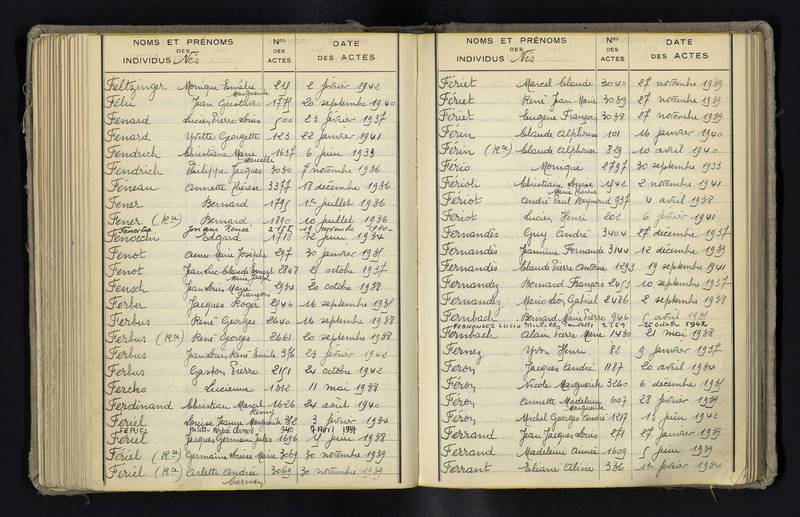 NOMS ET PRÉNOMS DES INDIVIDUS Nés
Nos DES ACTES
DATE DES ACTES
Feltzinger Monique Emélie Marguerite 24 2 février 1942
Félu Jean Gustave 20 septembre 1940
Fenard Lucien Pierre Louis 500 23 février 1937
Fenard Yvette Georgette 123 22 janvier 1941
Fendrich Christiane Marie Marcelle 1637 6 juin 1933
Fendrich Philippe Jacques 3030 7 novembre 1936
Féneau Annette Thérèse 3377 18 décembre 1936
Fener Bernard 1795 1er juillet 1936
Fener (Rec) Bernard 1890 10 juillet 1936
Josiane Renée 2155 19 novembre 1940
Fenocchi Edgard 1718 12 juin 1934
Fenot Anne Marie Josephe 297 30 janvier
Fenot Jean Luc Claude 2848 octobre 1937
Fensch Jean Louis Marie François 2934 20 octobre 1938
Ferber Jacques Roger 2946 16 septembre
Ferbus René Georges 2640 16 septembre 1938
Ferbus (Rec) René Georges 2661 20 septembre 1938
Ferbus Jean Louis René Emile 376 23 février 1942
Ferbus Gaston Pierre 2151 24 octobre 1942
Fercho Lucienne 1312 11 mai 1938
Ferdinand Christian Marcel Rémy 1626 24 août 1940
Fériel Louise Jeanne Marguerite 312 3 février 1934
FERIEL 940 7 Avril 1934
Fériel Jacques Germain Jules 1696 juin 1938
Fériel (Rec) Germaine Louise Marie 3069 30 novembre 1939
Fériel (Rec) Arlette Andrée Carmen 3069 30 novembre 1939
NOMS ET PRÉNOMS DES INDIVIDUS Nés
Nos DES ACTES
DATE DES ACTES
Fériet Marcel Claude 3040 27 novembre 1939
Fériet René Jean Marie 3039 27 novembre 1939
Fériet Eugène François 3038 27 novembre 1939
Férin Claude Alphonse 101 16 janvier 1940
Férin (Rec) Claude Alphonse 829 10 avril 1940
Fério Monique 2797 30 septembre 1933
Férioli Christiane Louise Marie Thérèse 1942 2 novembre 1941
Fériot André Paul Raymond 937 4 avril 1938
Fériot Lucien Henri 202 6 février 1941
Fernandès Guy André 3404 27 décembre 1937
Fernandès Jeannine Fernande 3144 12 décembre 1939
Fernandès Claude Pierre Antoine 1293 19 septembre 1941
Fernandez Bernard François 2453 10 septembre 1937
Fernandez Mario Léo Gabriel 2486 2 septembre 1938
Fernbach Bernard Marie Pierre 946 avril
FERNANDEZ Lucie 2159 25 octobre 1942
Fernbach Alain Pierre Marie 1430 21 mai 1938
Fernez Yvon Henri 83 9 janvier 1937
Feron Jacques André 1187 20 avril 1934
Féron Nicole Marguerite 3260 6 décembre
Féron Annette Madeleine Marguerite 607 28 février 1939
Féron Michel Georges André 1217 15 juin 1942
Ferrand Jean Jacques Louis 271 27 janvier 1939
Ferrand Madeleine Aimée 1609 5 juin 1939
Ferrant Eliane Aline 336 1er février 1934